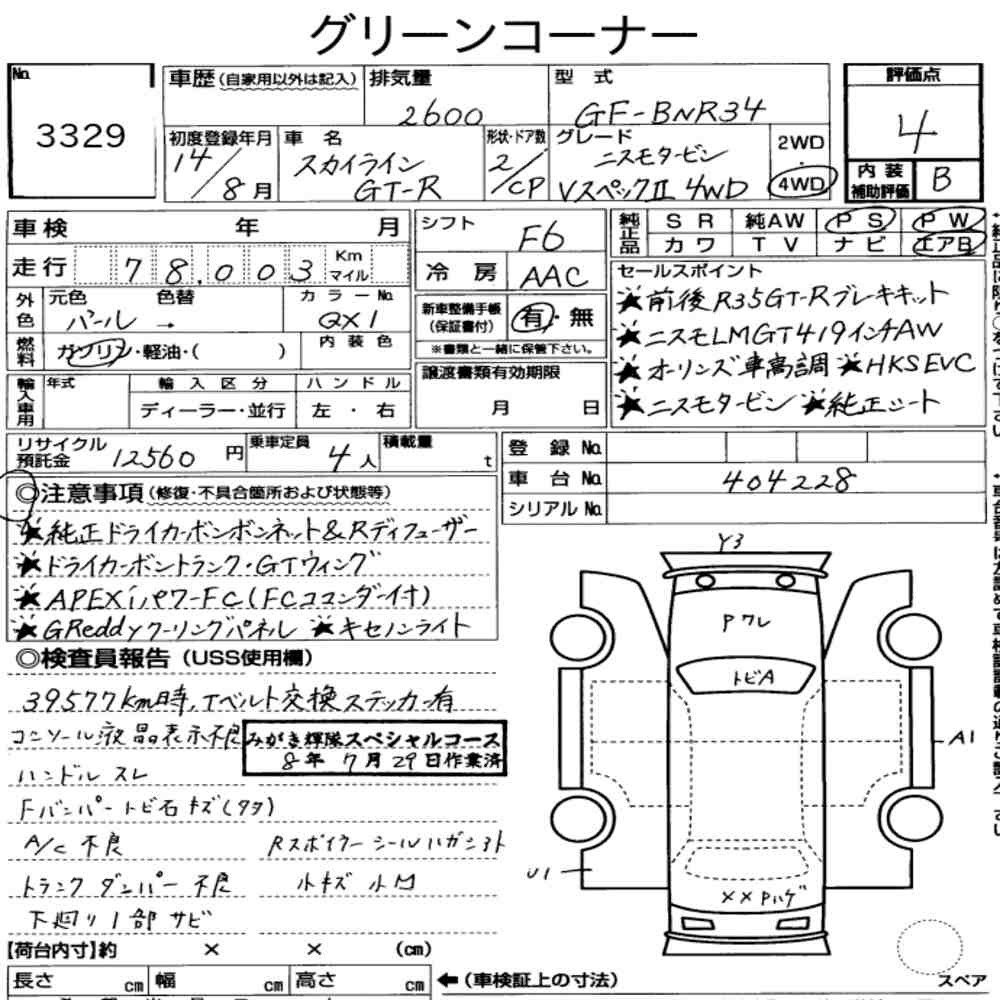 グリーンコーナー
No.
3329
車歴(自家用以外は記入)
排気量
2600
型 式
GF-BNR34
評価点
4
内装補助評価
B
初度登録年月
14/8月
車 名
スカイライン
GT-R
形状・ドア数
2/CP
グレード
ニスモタービン
VスペックⅡ 4WD
2WD
・
4WD
車検 年 月
走行 78,003 Km マイル
シフト
F6
冷房 AAC
純正品
SR 純AW PS PW
カワ TV ナビ エアB
外色
元色 色替
パール →
カラーNo.
QX1
燃料
ガソリン・軽油・( )
内装色
新車整備手帳
(保証書付)
有・無
※書類と一緒に保管下さい。
輸入車用
年式
輸入区分
ディーラー・並行
ハンドル
左・右
譲渡書類有効期限
月 日
セールスポイント
★前後R35GT-Rブレキキット
★ニスモLMGT4 19インチAW
★オーリンズ車高調 ★HKS EVC
★ニスモタービン ★純正シート
リサイクル預託金 12560円
乗車定員 4人
積載量 t
登録No.
車台No. 404228
シリアルNo.
◎注意事項(修復・不具合箇所および状態等)
★純正ドライカーボンボンネット&Rディフューザー
★ドライカーボントランク・GTウィング
★APEXiパワーFC(FCコマンダー付)
★GReddyクーリングパネル ★キセノンライト
◎検査員報告(USS使用欄)
39577km時、Tベルト交換ステッカー有
コンソール液晶表示不良
みがき輝隊スペシャルコース
8年 7月 29日作業済
ハンドル スレ
Fバンパートビ石キズ(タタ)
A/C 不良
Rスポイラーシールハガシアト
トランク ダンパー 不良
小キズ 小凹
下廻り1部サビ
Y3
Pワレ
トビA
A1
U1
××Pハゲ
スペア
【荷台内寸】約 × × (cm)
長さ cm 幅 cm 高さ cm
←(車検証上の寸法)